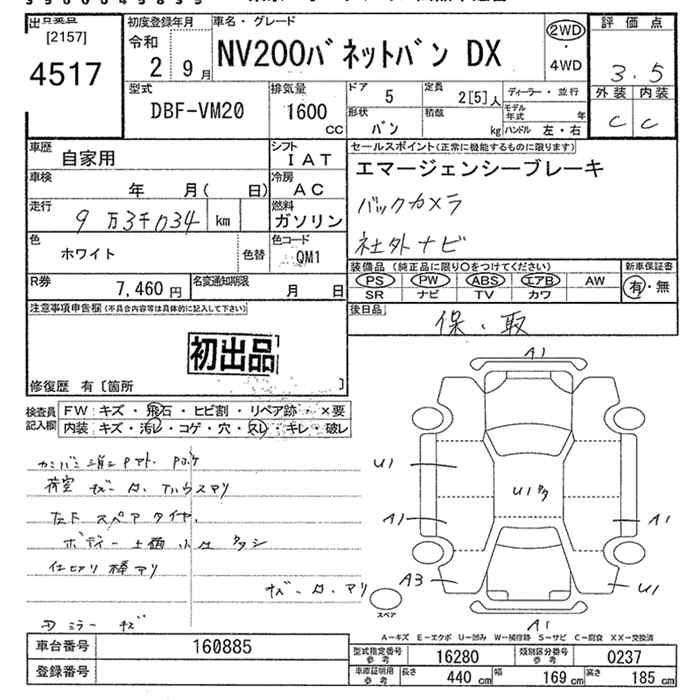 出品番号
[2157]
4517
初度登録年月
令和
2 9月
車名・グレード
NV200バネットバン DX
2WD
・
4WD
評価点
3.5
外装 内装
C C
型式
DBF-VM20
排気量
1600
cc
ドア
5
定員
2[5]人
ディーラー・並行
形状
バン
積載
kg
モデル年式
年
ハンドル 左・右
車歴
自家用
シフト
IAT
セールスポイント(正常に機能するものに限ります)
エマージェンシーブレーキ
バックカメラ
社外ナビ
車検
年 月( 日)
冷房
AC
走行
9万3千034 km
燃料
ガソリン
色
ホワイト
色替
色コード
QM1
装備品 (純正品に限り○をつけてください)
PS PW ABS エアB AW
SR ナビ TV カワ
新車保証書
有・無
R券
7,460円
名変通知期限
月 日
後日品
保・取
注意事項申告欄(不具合内容等は具体的に記入して下さい)
初出品
修復歴 有〔箇所 〕
検査員
記入欄
FW: キズ・飛石・ヒビ割・リペア跡・×要
内装: キズ・汚レ・コゲ・穴・スレ・キレ・破レ
左下 スペアタイヤ
仕切り棒アリ
ミラー キズ
A1
U1
U1
A1
A1
A3
U1
A1
スペア
A-キズ E-エクボ U-凹み W-補修跡 S-サビ C-腐食 XX-交換済
車台番号
160885
登録番号
型式指定番号
参考
16280
類別区分番号
参考
0237
車庫証明用
参考
長さ
440 cm
幅
169 cm
高さ
185 cm